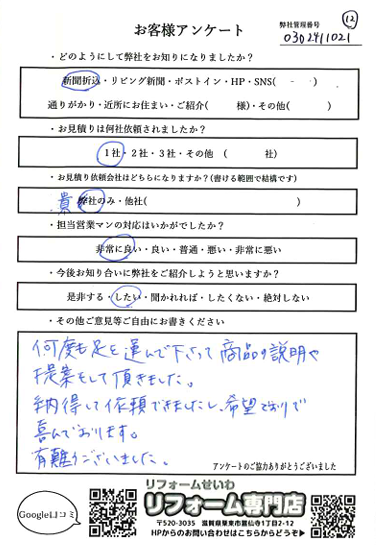 お客様アンケート
弊社管理番号
⑫
0302411021
・どのようにして弊社をお知りになりましたか?
新聞折込・リビング新聞・ポストイン・HP・SNS( - )
通りがかり・近所にお住まい・ご紹介( 様)・その他( )
・お見積りは何社依頼されましたか?
1社・2社・3社・その他 ( 社)
・お見積り依頼会社はどちらになりますか?(書ける範囲で結構です)
貴 弊社のみ・他社( )
・担当営業マンの対応はいかがでしたか?
非常に良い・良い・普通・悪い・非常に悪い
・今後お知り合いに弊社をご紹介しようと思いますか?
是非する・したい・聞かれれば・したくない・絶対しない
・その他ご意見等ご自由にお書きください
何度も足を運んで下さって商品の説明や
提案をして頂きました。
納得して依頼できましたし、希望どおりで
喜んでおります。
有難うございました。
アンケートのご協力ありがとうございました
Google口コミ
リフォームせいわ
リフォーム専門店
〒520-3035 滋賀県栗東市霊仙寺1丁目2-12
HPからのお問い合わせはこちらからどうぞ▶